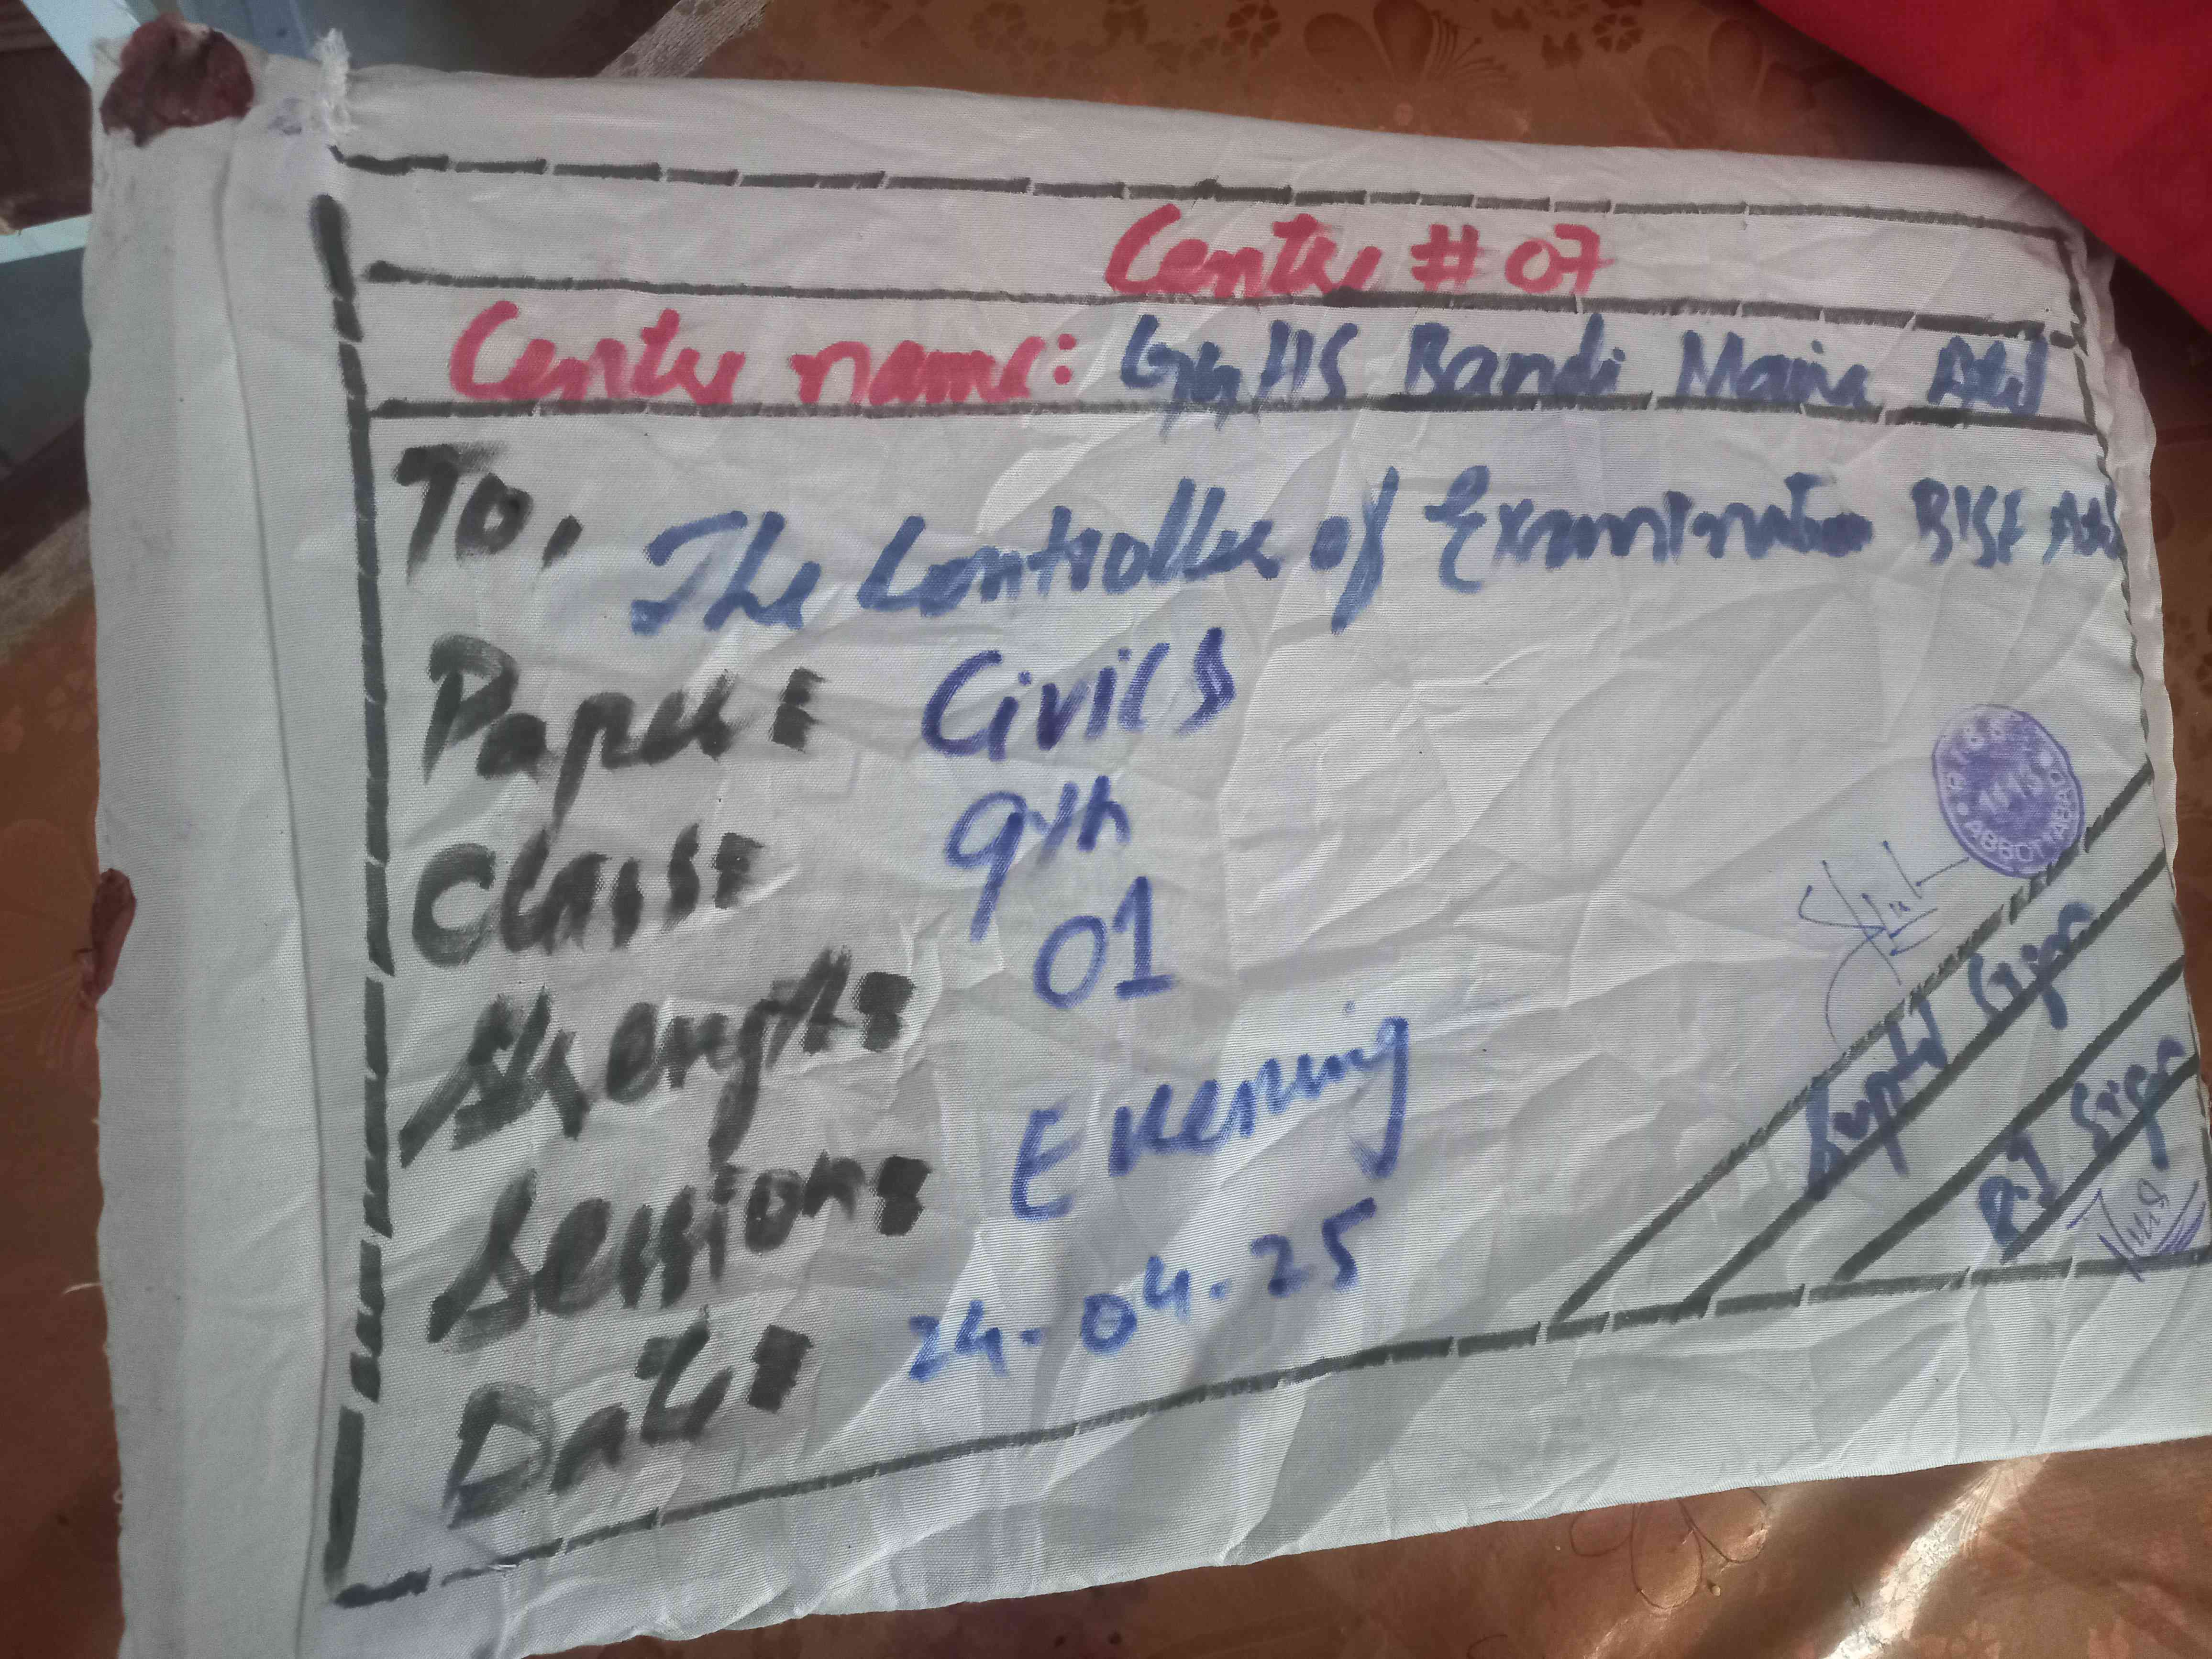 Centre # 07
Centre name: GGHS Bandi Maira Atd
To,
The Controller of Examination BISE Atd
Paper: Civics
Class: 9th
Strength: 01
Session: Evening
Date: 24-04-25
Suptd Sign
R.I Sign
ABBOTTABAD